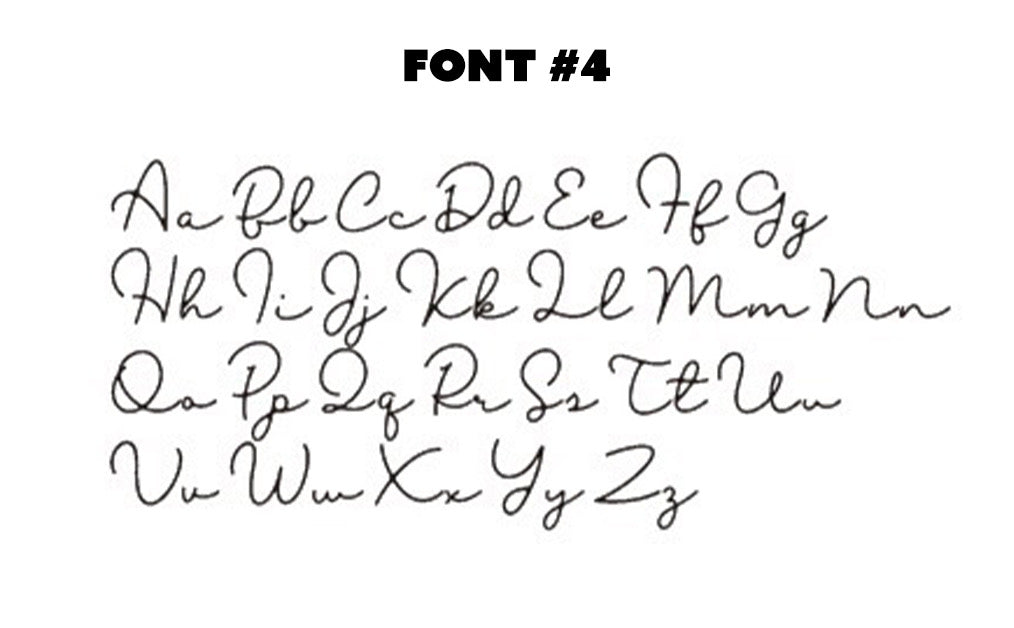 FONT #4
Aa Bb Cc Dd Ee Ff Gg
Hh Ii Jj Kk Ll Mm Nn
Oo Pp Qq Rr Ss Tt Uu
Vv Ww Xx Yy Zz